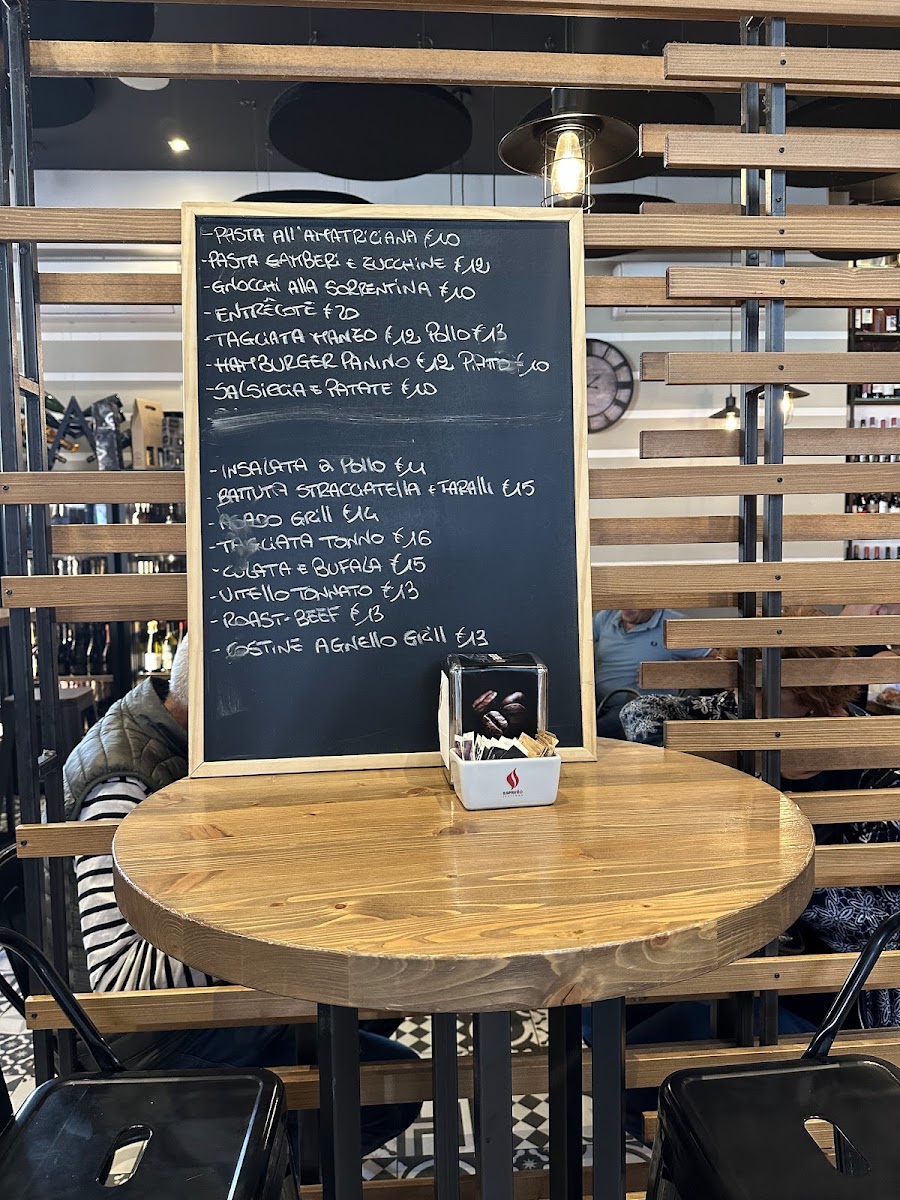 - PASTA All'AMATRICIANA €10
- PASTA GAMBERI E ZUCCHINE €12
- GNOCCHI ALLA SORRENTINA €10
- ENTRÊCOTE €20
- TAGLIATA MANZO €12 POLLO €13
- HAMBURGER PANINO €12 PIATTO €10
- SALSICCIA E PATATE €10
- INSALATA DI POLLO €11
- BATTUTA STRACCIATELLA E TARALLI €15
- ASADO GRILL €14
- TAGLIATA TONNO €16
- CULATA E BUFALA €15
- VITELLO TONNATO €13
- ROAST-BEEF €13
- COSTINE AGNELLO GRILL €13